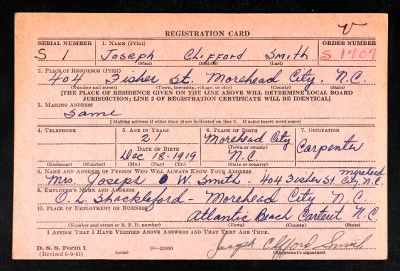 REGISTRATION CARD
SERIAL NUMBER 1. NAME (Print) ORDER NUMBER
S 1 Joseph Clifford Smith S 1707
(First) (Middle) (Last)
2. PLACE OF RESIDENCE (Print)
404 Fisher St. Morehead City, N.C.
(Number and street) (Town, township, village, or city) (County) (State)
[THE PLACE OF RESIDENCE GIVEN ON THE LINE ABOVE WILL DETERMINE LOCAL BOARD
JURISDICTION; LINE 2 OF REGISTRATION CERTIFICATE WILL BE IDENTICAL]
3. MAILING ADDRESS
Same
[Mailing address if other than place indicated on line 2. If same insert word same]
4. TELEPHONE 5. AGE IN YEARS 6. PLACE OF BIRTH 7. OCCUPATION
21 Morehead City Carpenter
DATE OF BIRTH (Town or county)
Dec 18-1919 N.C
(Exchange) (Number) (Mo.) (Day) (Yr.) (State or country)
8. NAME AND ADDRESS OF PERSON WHO WILL ALWAYS KNOW YOUR ADDRESS
Mrs Joseph W. Smith - 404 Fisher St. Morehead City, N.C.
9. EMPLOYER'S NAME AND ADDRESS
O. L. Shackleford - Morehead City N.C.
10. PLACE OF EMPLOYMENT OR BUSINESS
Atlantic Beach Carteret N.C
(Number and street or R. F. D. number) (Town) (County) (State)
I AFFIRM THAT I HAVE VERIFIED ABOVE ANSWERS AND THAT THEY ARE TRUE.
D. S. S. Form 1
(Revised 6-9-41)
Joseph Clifford Smith